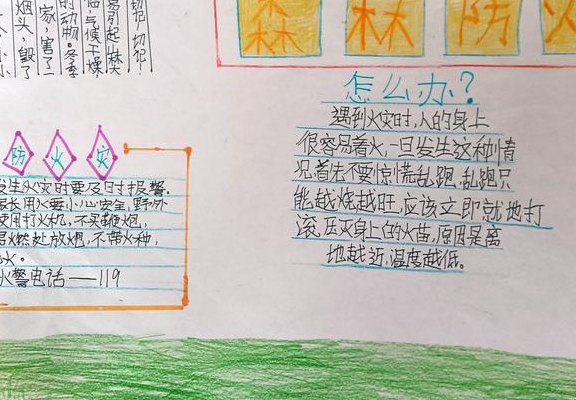 森林防火
烟头，毁了
家，害了
的动物。冬季
临，气候干燥
易引起
切记切记
怎么办？
遇到火灾时，人的身上
很容易着火，一旦发生这种情
况，首先不要惊慌乱跑，乱跑只
能越烧越旺，应该立即就地打
滚，压灭身上的火苗，原因是离
地越近，温度越低。
防火灾
发生火灾时要及时报警。
长用火要小心安全，野外
使用打火机，不买鞭炮，
易燃处放炮，不带火种，
火。
火警电话——119